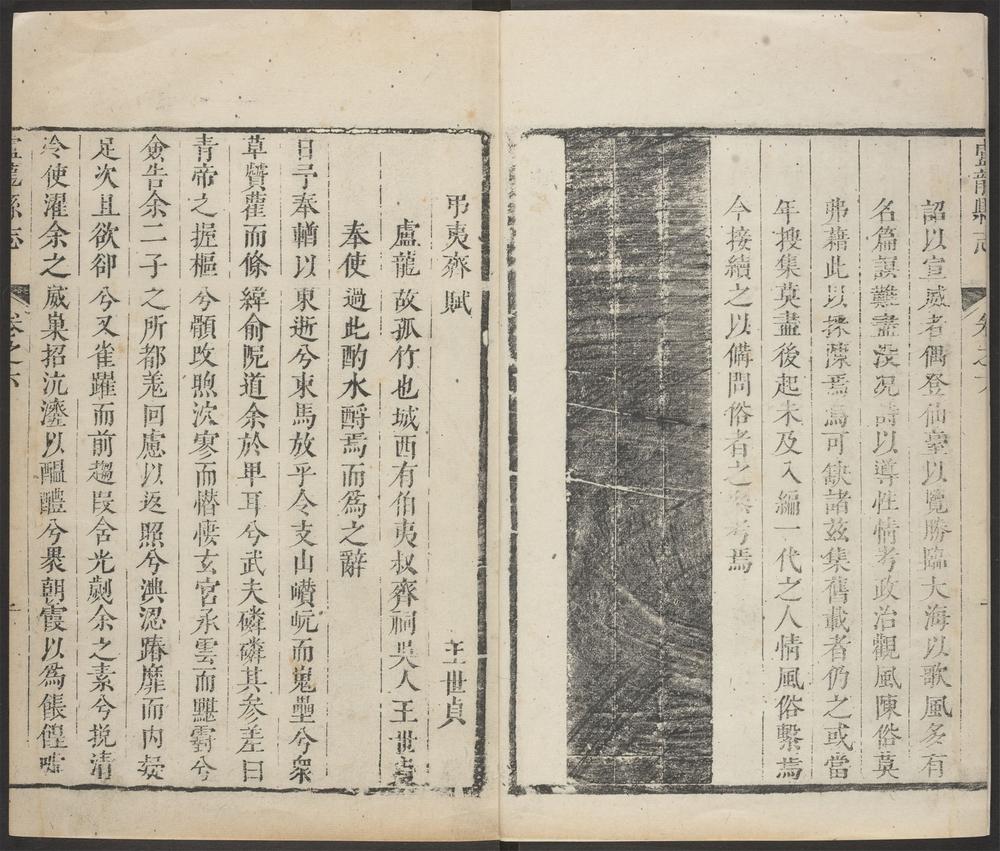 盧龍縣志 卷之六
詔以宣威者偶登仙臺以覽勝臨大海以歌風多有
名篇誤難盡没况詩以導性情考政治觀風陳俗莫
弗藉此以採藻焉焉可缺諸玆集舊載者仍之或當
年搜集莫盡後起未及入編一代之人情風俗繫焉
今接續之以備問俗者之考焉
弔夷齊賦 王世貞
盧龍故孤竹也城西有伯夷叔齊祠吳人王世貞
奉使過此酌水酹焉而爲之辭
日予奉輶以東逝兮束馬放乎令支山巑岏而嵬壘兮衆
草贙藋而條緯俞兒道余於卑耳兮武夫磷磷其参差曰
青帝之握樞兮顥攺煦㳄寒而憯悽玄宮承雲而黮霨兮
僉告余二子之所都羗回慮以返照兮淟涊踳靡而内
足次且欲卻兮又雀躍而前趨叚含光劌余之素兮挩清
泠使濯余之烕巢招沆瀣以醖醴兮褁朝霞以爲餦餭
盧龍縣志 卷之六